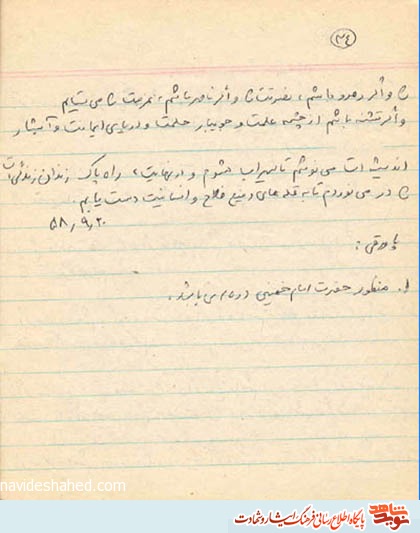 (۳۴)
را و اگر رهرو باشم، نصرتت را و اگر ناصر باشم، نصرتت را می‌ستایم
و اگر تشنه باشم از چشمه علمت و جویبار حلمت و دریای ایمانت و آبشار
اندیشه‌ات می‌نوشم تا سیراب شوم و در نهایت، راه پاک زندان زندگی‌ات
را در می‌نوردم تا به قله‌های رفیع فلاح و انسانیت دست یابم.
۵۸٫۹٫۲۰
پاورقی:
۱. منظور حضرت امام خمینی می‌باشد.
navideshahed.com
نوید شاهد پایگاه اطلاع رسانی فرهنگ ایثار و شهادت